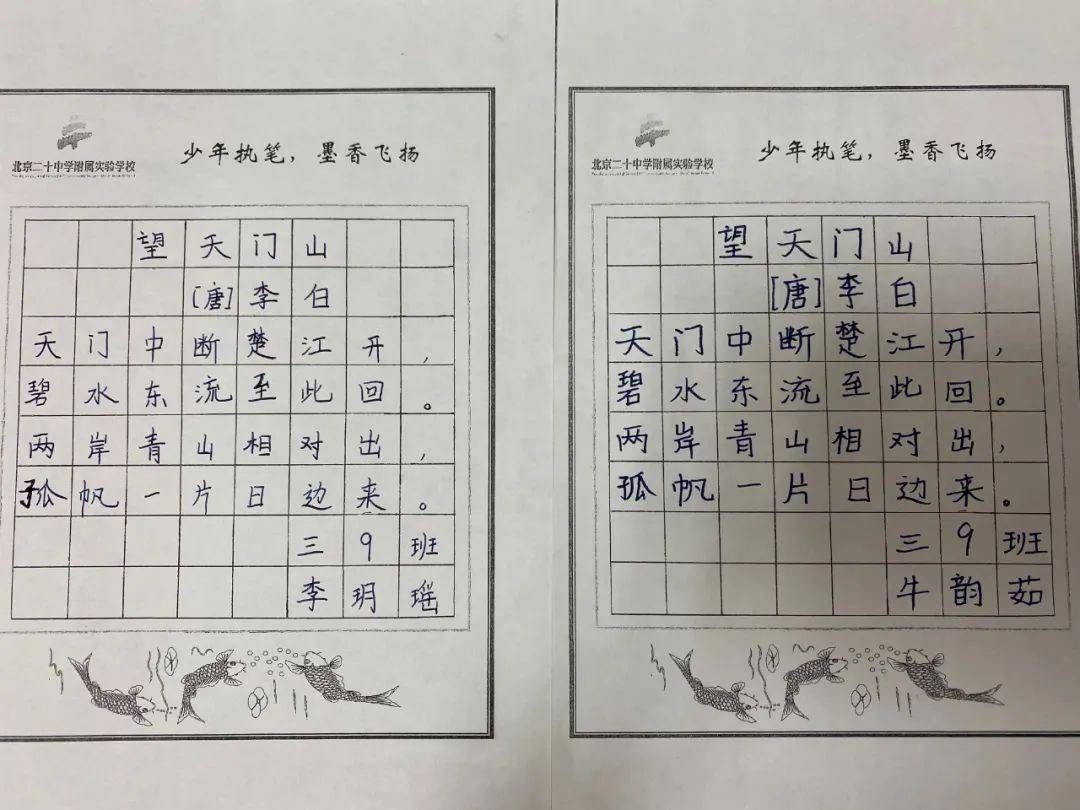 北京二十中学附属实验学校
少年执笔，墨香飞扬
望天门山
[唐]李白
天门中断楚江开，
碧水东流至此回。
两岸青山相对出，
孤帆一片日边来。
三9班
李玥瑶
北京二十中学附属实验学校
少年执笔，墨香飞扬
望天门山
[唐]李白
天门中断楚江开，
碧水东流至此回。
两岸青山相对出，
孤帆一片日边来。
三9班
牛韵茹